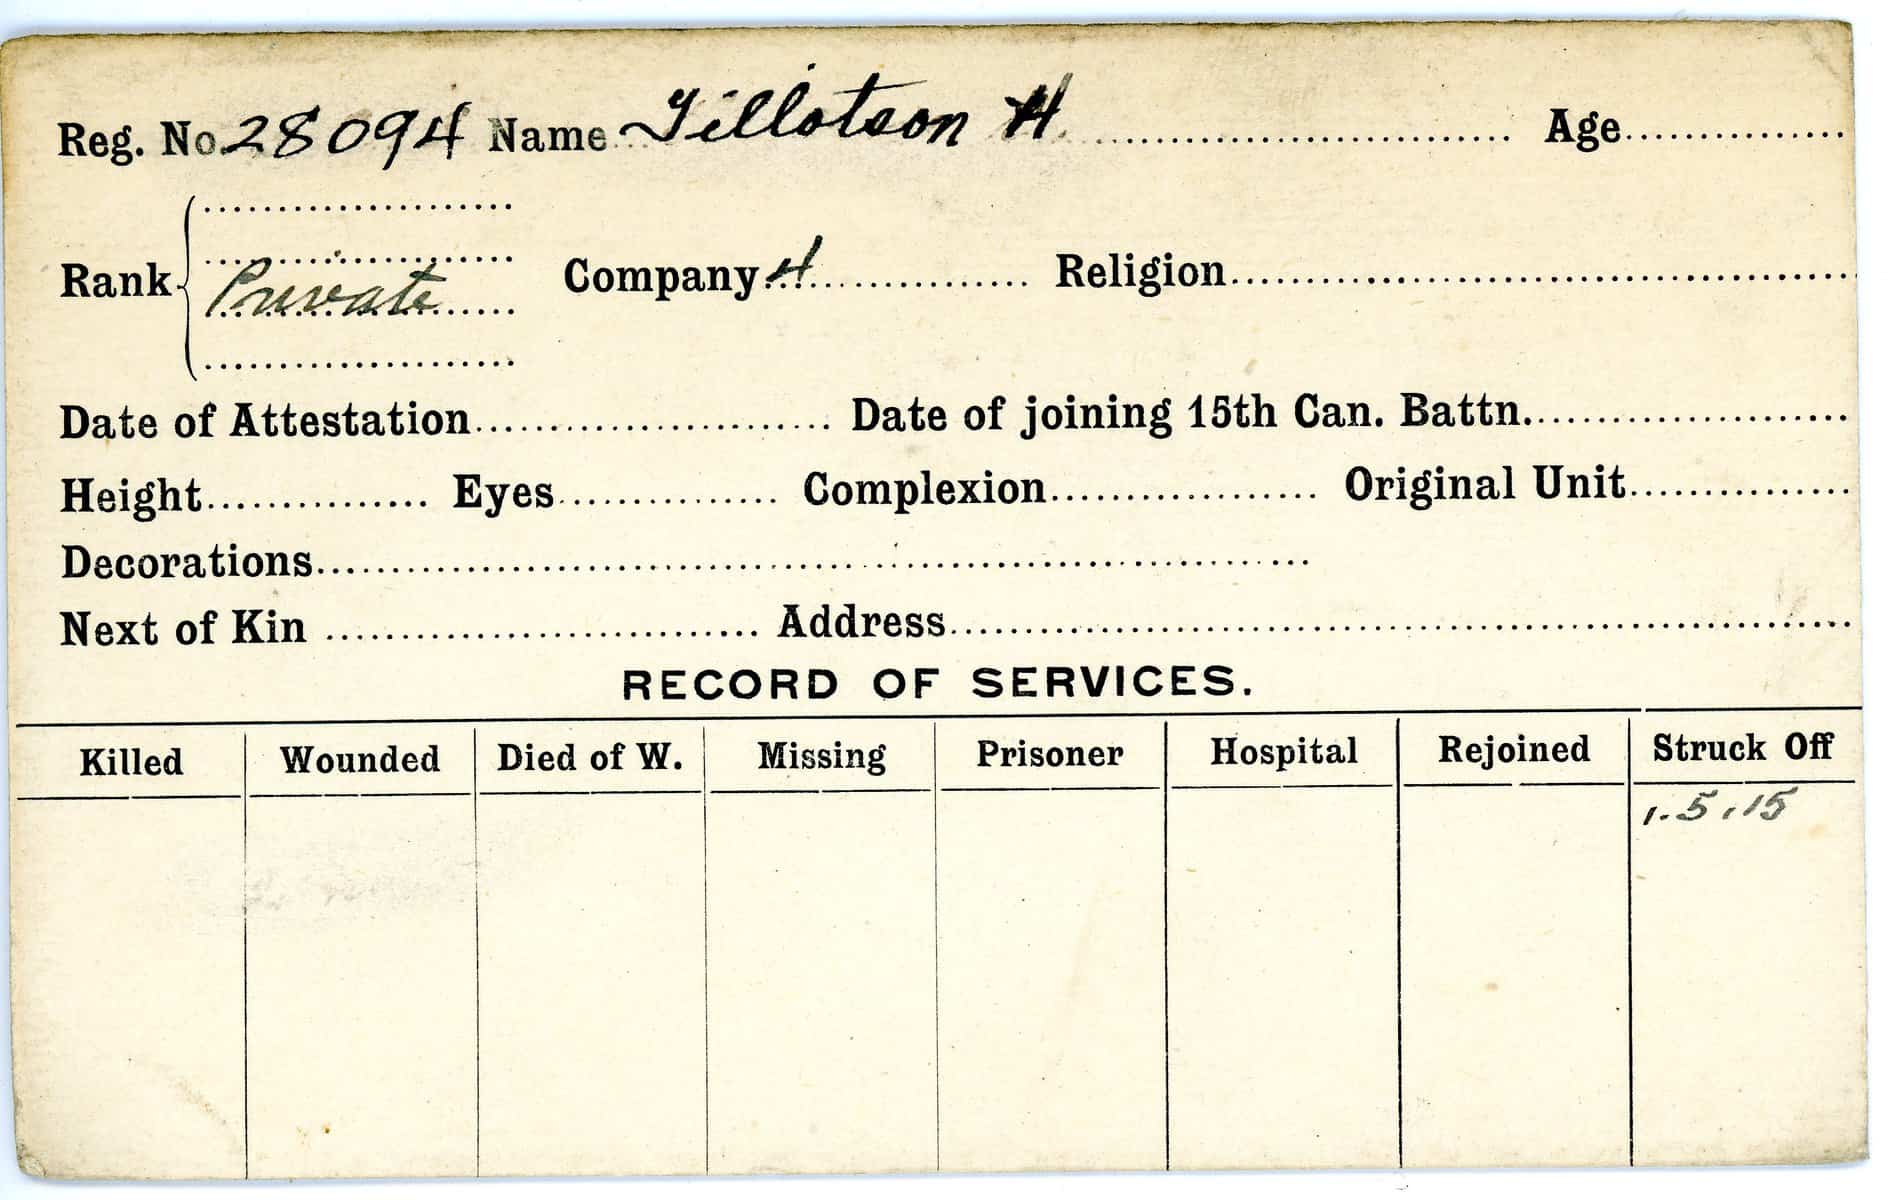 Reg. No. 28094 Name Tillotson H. Age
Rank Private Company 4 Religion
Date of Attestation Date of joining 15th Can. Battn.
Height Eyes Complexion Original Unit
Decorations
Next of Kin Address
RECORD OF SERVICES.
Killed Wounded Died of W. Missing Prisoner Hospital Rejoined Struck Off
1.5.15